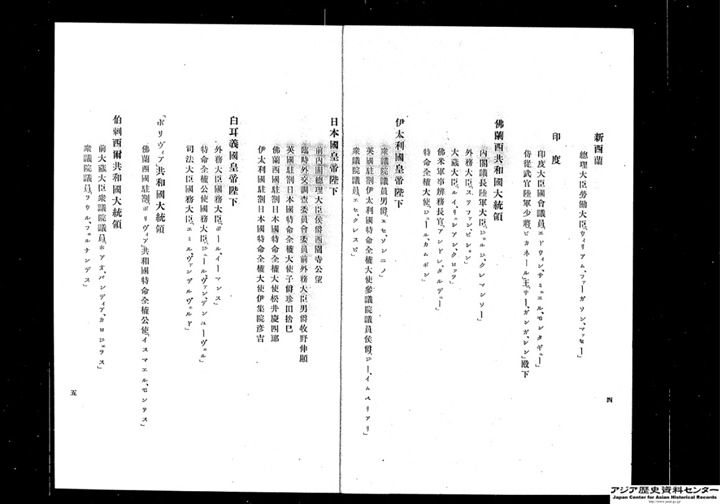 新西蘭
總理大臣勞働大臣「ウィリアム、ファーガソン、マッセー」
印度
印度大臣國會議員「エドウィン、サミュエル、モンタギュー」
侍從武官陸軍少將「ビカネール」王「サー、ガンガ、シン」殿下
佛蘭西共和國大統領
内閣議長陸軍大臣「ジョルジ、クレマンソー」
外務大臣「ステファン、ピション」
大藏大臣「ルイ、リュシアン、クロッツ」
佛米軍事辨務長官「アンドレ、タルデュー」
特命全權大使「ジュール、カムボン」
伊太利國皇帝陛下
衆議院議員男爵「エセ、ソンニノ」
英國駐剳伊太利國特命全權大使參議院議員侯爵「ジー、イムペリアリ」
衆議院議員「エセ、クレスピ」
四
日本國皇帝陛下
前内閣總理大臣侯爵西園寺公望
臨時外交調査委員會委員前外務大臣男爵牧野伸顯
英國駐剳日本國特命全權大使子爵珍田捨巳
佛蘭西國駐剳日本國特命全權大使松井慶四郎
伊太利國駐剳日本國特命全權大使伊集院彦吉
白耳義國皇帝陛下
外務大臣國務大臣「ポール、イーマンス」
特命全權公使國務大臣「ジュール、ヴァンデン、ユーヴェル」
司法大臣國務大臣「エミール、ヴァンデルヴェルド」
「ボリヴィア」共和國大統領
佛蘭西國駐剳「ボリヴィア」共和國特命全權公使「イスマエル、モンテス」
伯剌西爾共和國大統領
前大藏大臣衆議院議員「ホアオ、パンディア、カロジェラス」
衆議院議員「ラウル、フェルナンデス」
五
アジア歴史資料センター
Japan Center for Asian Historical Records